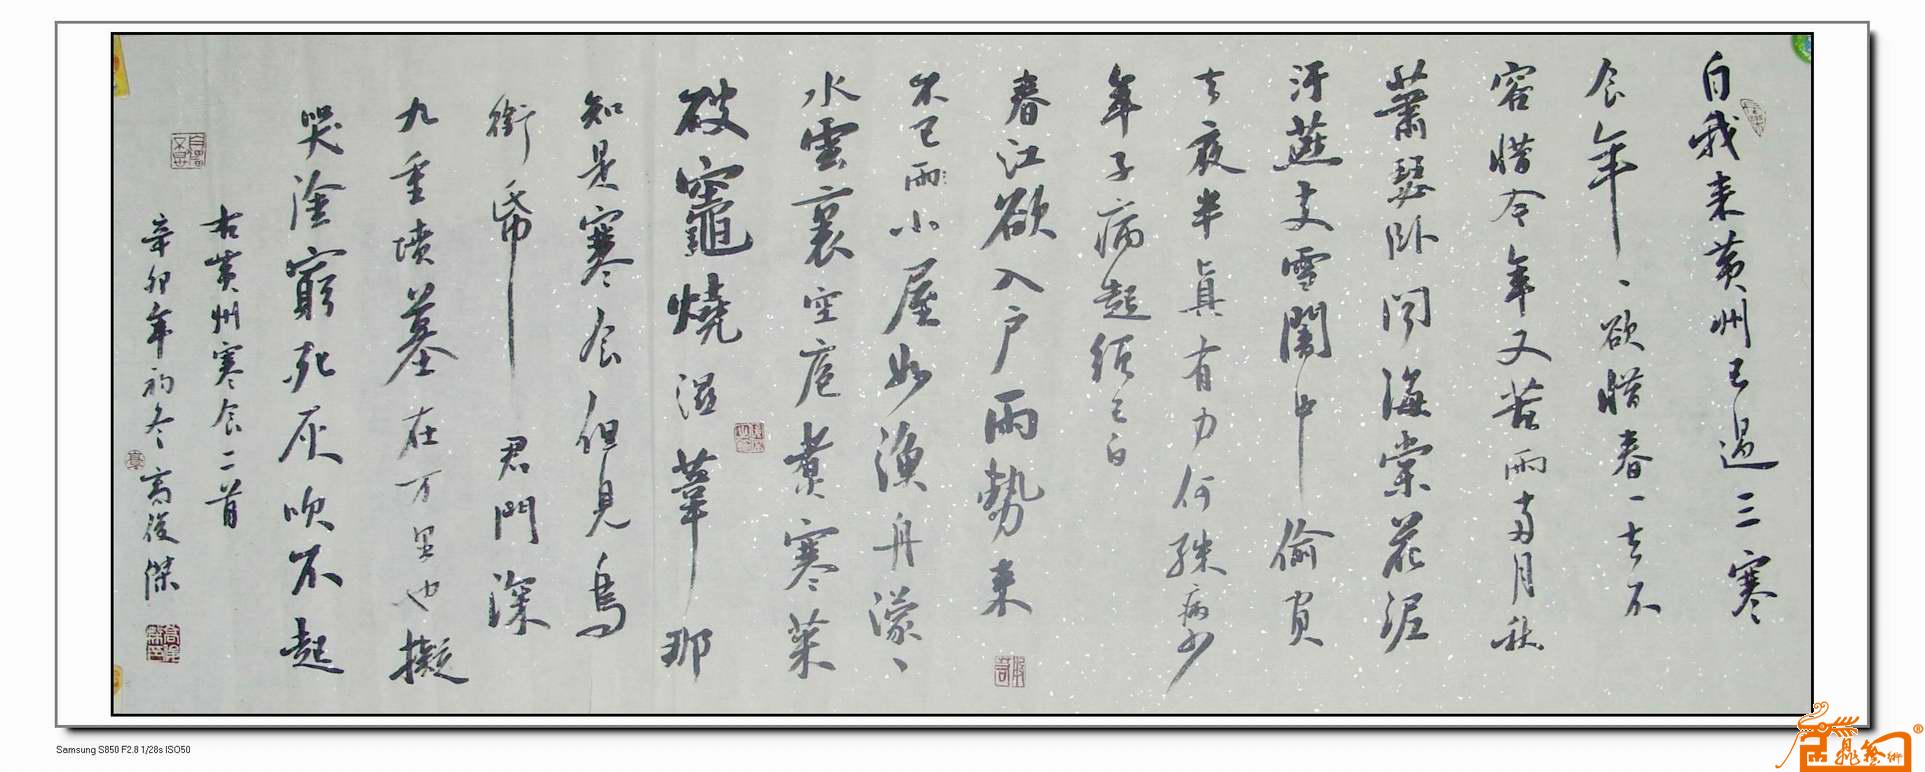 自我来黄州已過三寒
食年、欲惜春一去不
容惜今年又苦雨两月秋
蕭瑟卧聞海棠花泥
汙燕支雪闇中偷負
去夜半真有力何殊病少
年子病起须已白
春江欲入户雨勢来
不已雨小屋如漁舟濛、
水雲裏空庖煮寒菜
破竈燒溼葦那
知是寒食但見烏
銜帋
君門深
九重墳墓在万里也擬
哭塗窮死灰吹不起
右黄州寒食二首
辛卯年初冬高俊傑
Samsung S850 F2.8 1/28s ISO50